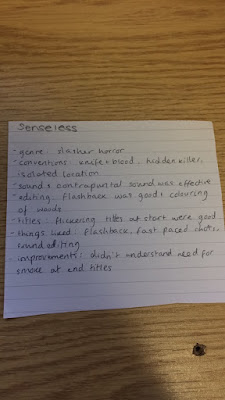 Senseless
- genre: slasher horror
- conventions: knife & blood, hidden killer,
isolated location
- sound: contrapuntal sound was effective
- editing: flashback was good & colouring
of woods
- titles: flickering titles at start were good
- things liked: flashback, fast paced cuts,
sound editing
- improvements: didn't understand need for
smoke at end titles